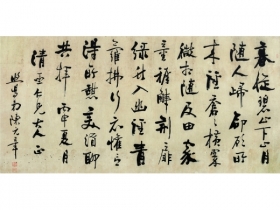 暮從碧山下山月
隨人歸卻顧所
來徑蒼蒼橫翠
微相攜及田家
童稚開荊扉
綠竹入幽徑青
蘿拂行衣懽言
得所憩美酒聊
共揮 丙申夏月
仁兄大人正
弟陳大年